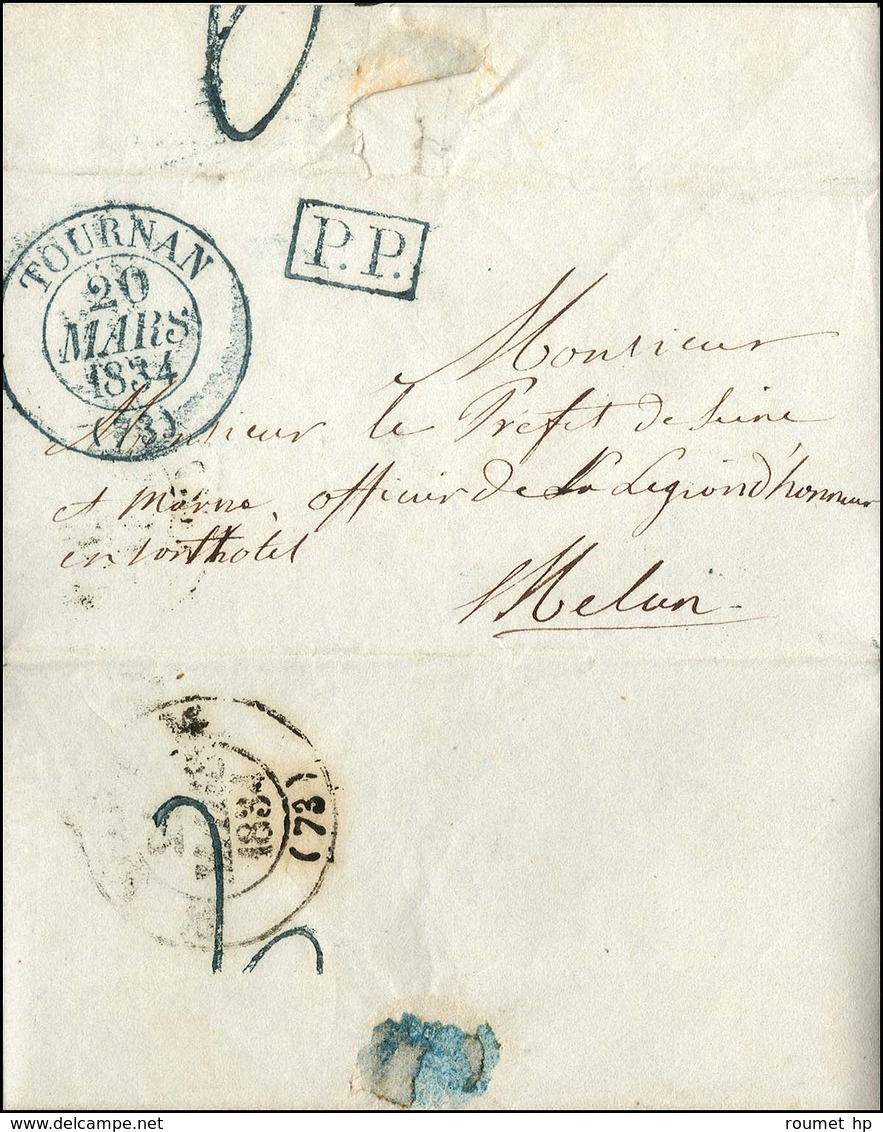 TOURNAN
20
MARS
1834
(73)
P.P.
Monsieur
Monsieur le Préfet de Seine
et marne, officier de la Legiond'honneur
en son hotel
Melun
1834
(73)
delcampe.net
roumet hp